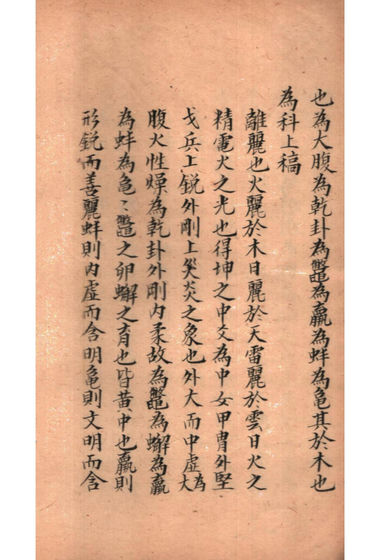 也為大腹為乾卦為鼈為蠃為蚌為龜其於木也
為科上稿
離麗也火麗於木日麗於天雷麗於雲日火之
精電火之光也得坤之中爻為中女甲胄外堅
戈兵上銳外剛上炎炎之象也外大而中虛為大
腹火性燥為乾卦外剛內柔故為鼈為蠏為蠃
為蚌為龜〻鼈之卵蠏之育也皆黄中也蠃則
形銳而善麗蚌則內虛而含明龜則文明而含